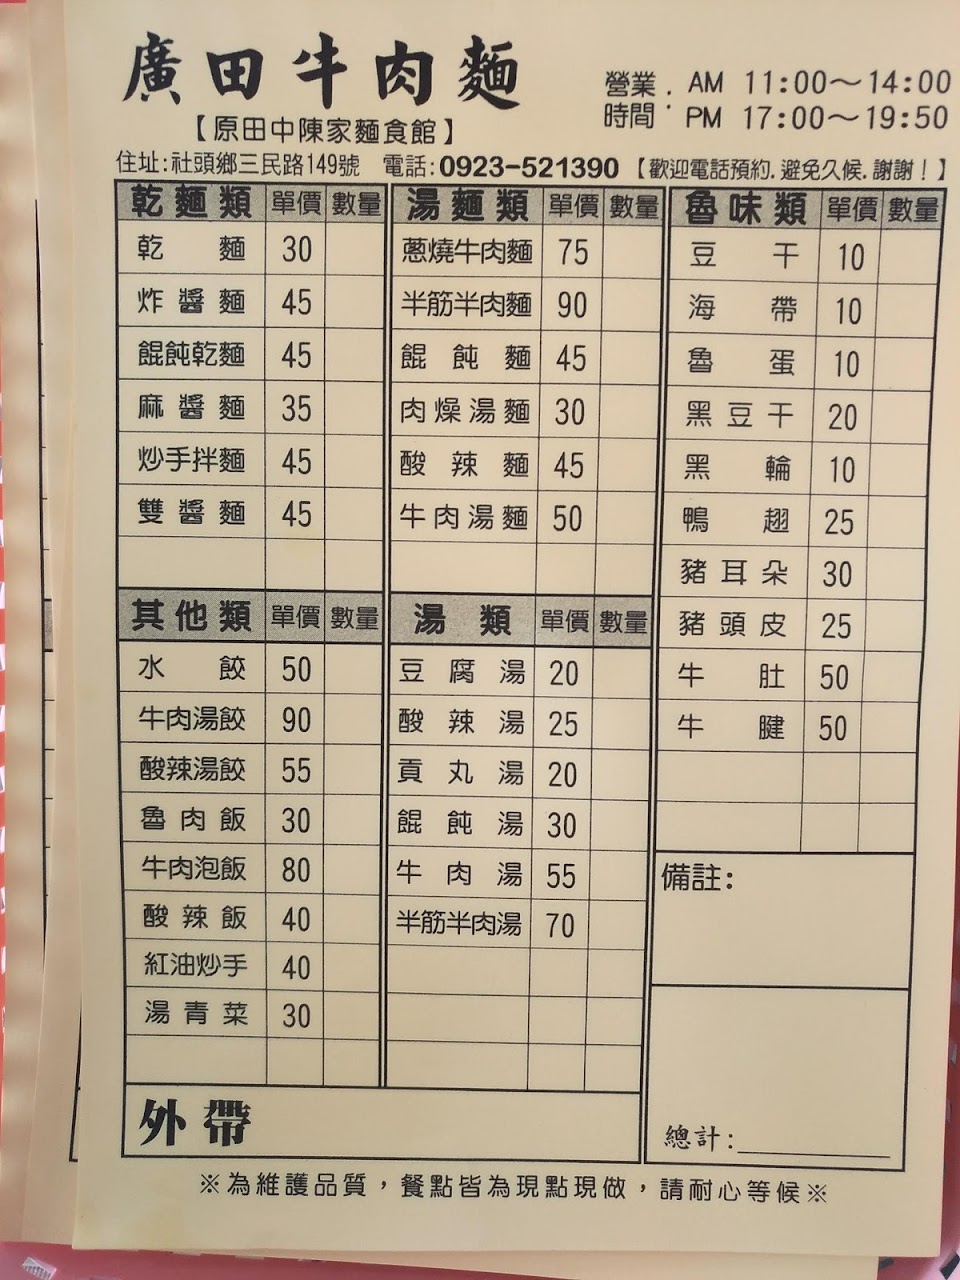 廣田牛肉麵
【原田中陳家麵食館】
營業時間: AM 11:00～14:00
PM 17:00～19:50
住址:社頭鄉三民路149號 電話:0923-521390【歡迎電話預約.避免久候.謝謝!】
乾麵類 單價 數量
乾麵 30
炸醬麵 45
餛飩乾麵 45
麻醬麵 35
炒手拌麵 45
雙醬麵 45
其他類 單價 數量
水餃 50
牛肉湯餃 90
酸辣湯餃 55
魯肉飯 30
牛肉泡飯 80
酸辣飯 40
紅油炒手 40
湯青菜 30
湯麵類 單價 數量
蔥燒牛肉麵 75
半筋半肉麵 90
餛飩麵 45
肉燥湯麵 30
酸辣麵 45
牛肉湯麵 50
湯類 單價 數量
豆腐湯 20
酸辣湯 25
貢丸湯 20
餛飩湯 30
牛肉湯 55
半筋半肉湯 70
魯味類 單價 數量
豆干 10
海帶 10
魯蛋 10
黑豆干 20
黑輪 10
鴨翅 25
豬耳朵 30
豬頭皮 25
牛肚 50
牛腱 50
備註:
總計:
外帶
※為維護品質，餐點皆為現點現做，請耐心等候※